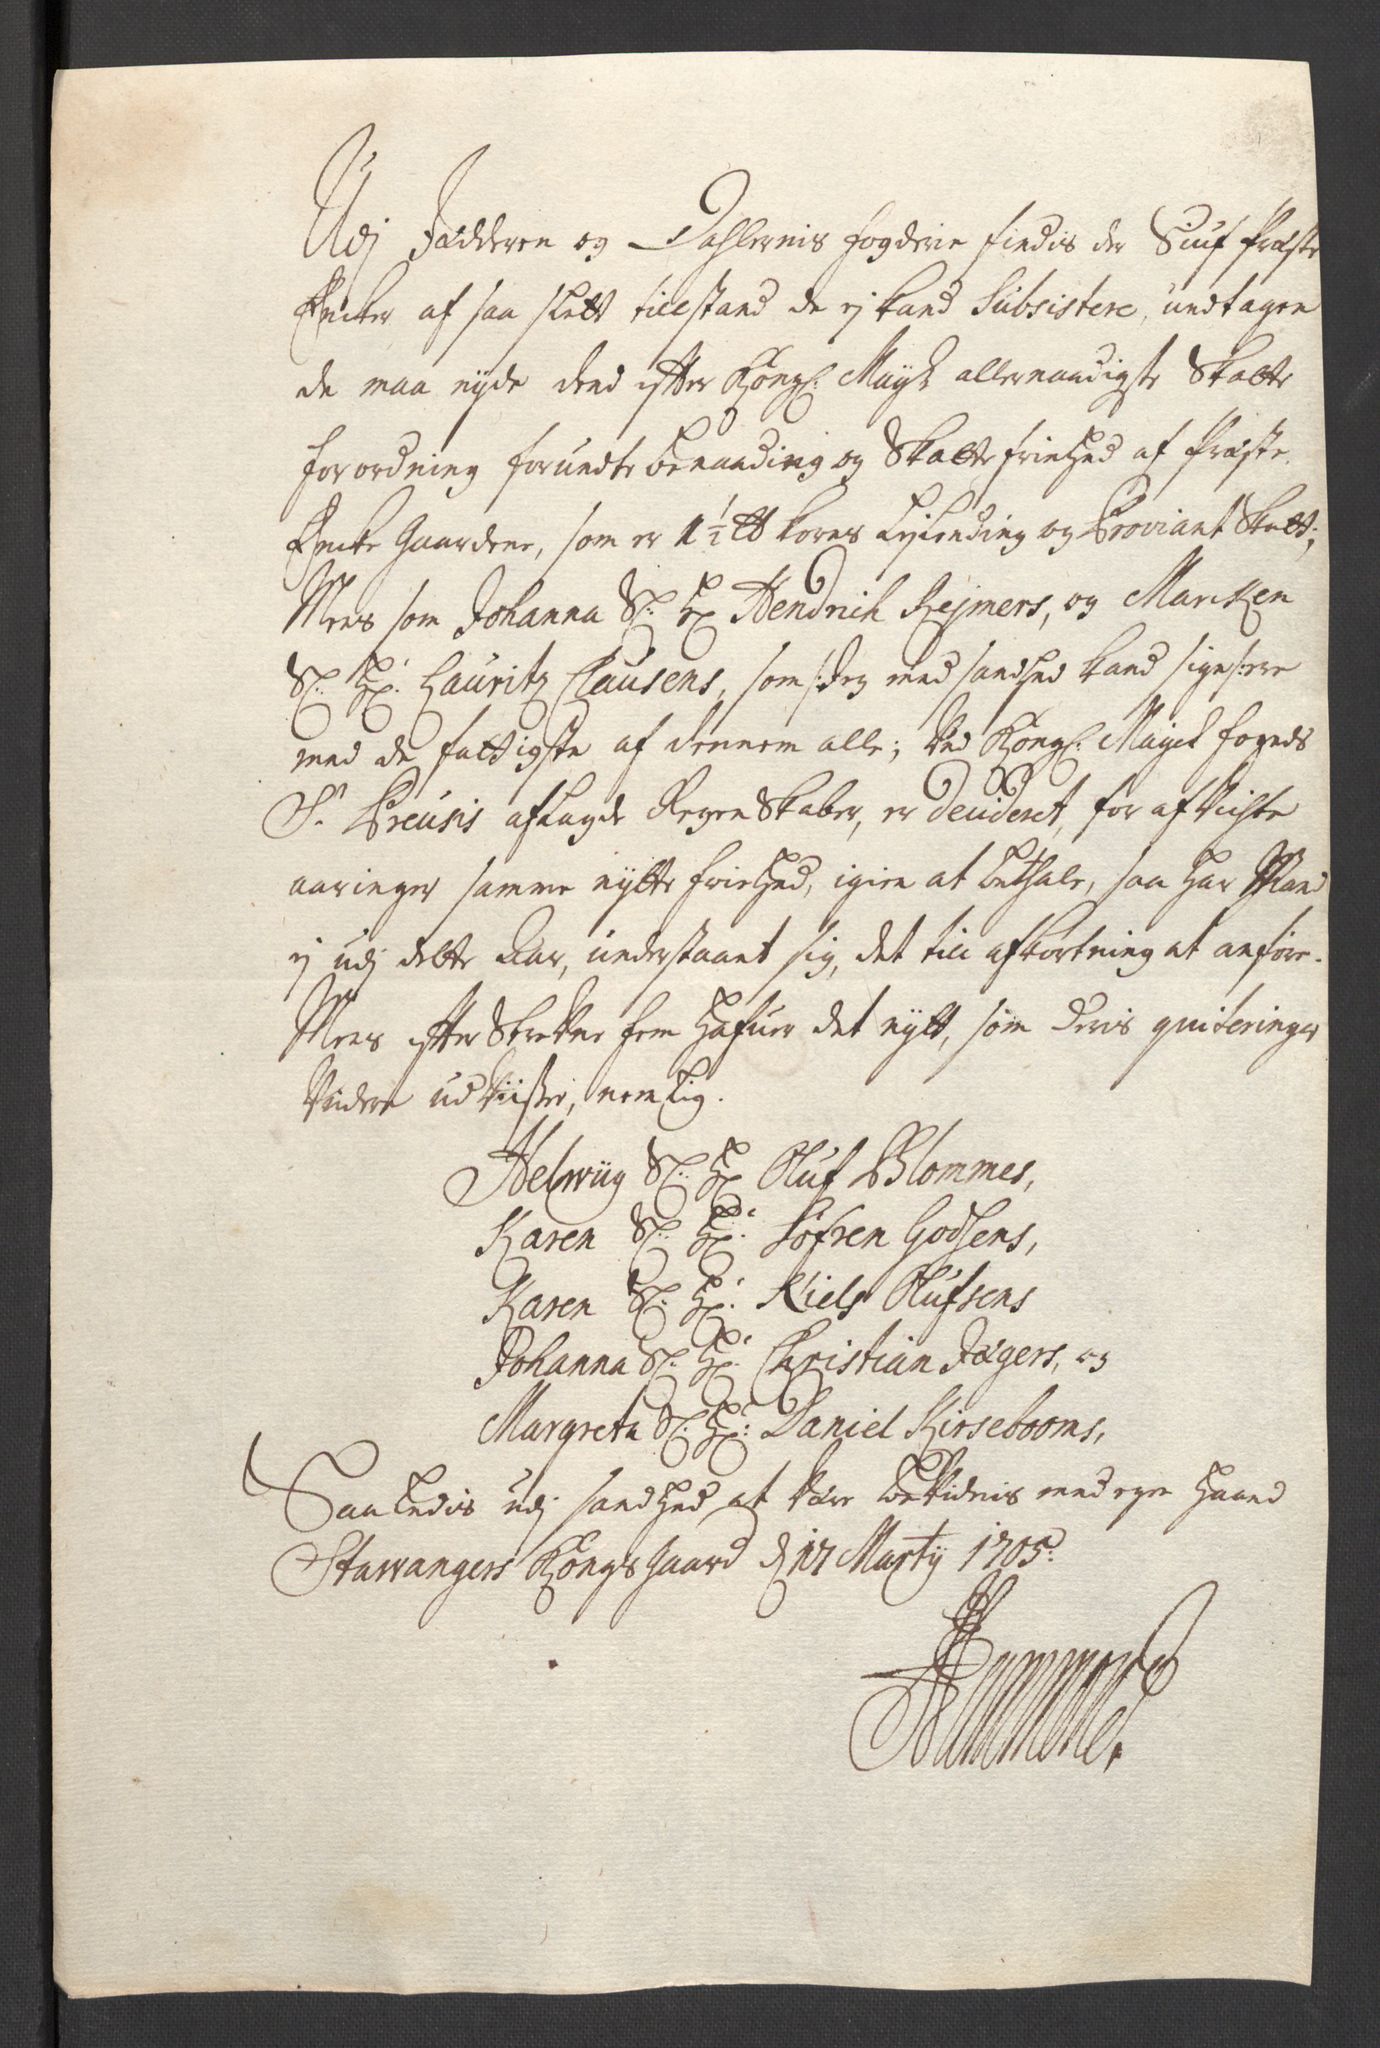 Udj Jædderen og Dahlernis fogderie findis der Siuf Præste
Encker af saa slett tillstand de ej kand Subsistere, undtagen
de maa nyde dend efter Kongl: Mayts allernaadigste Skatte
forordning forundte benaading og Skatte friehed af Præste
Encke Gaardene, som er 1½ tt Korns Leylending og Proviant Skatt;
Mens som Johanna Sl: Hr Hendrich Reimers, og Maricken
Sl: Hr: Lauritz Clausens, som /: dog med sandhed kand siges :/ ere
med de fattigste af dennem alle; ved Kongl: Mayts fogeds
Sr. Preusis aflagde Regenskaber, er Deuideret, for afvichte
aaringer samme nytte friehed, igien at betahle, saa har Mand
ej udj dette Aar, understaaet sig, det till afkortning at anføre.
Mens efterskrefne fem hafuer det nytt, som deris quiteringer
videre udviiser, nemlig.
Helwiig Sl: Hr Oluf Blommes,
Karen Sl: Hr: Søfren Godsens,
Karen Sl: Hr: Niels Olufsens
Johanna Sl: Hr: Christian Jægers, og
Margreta Sl: Hr: Daniel Kirsebooms,
Saaledis udj sandhed at være bekidnis med egen haand
Stawangers Kongsgaard d 17 Martij 1705.